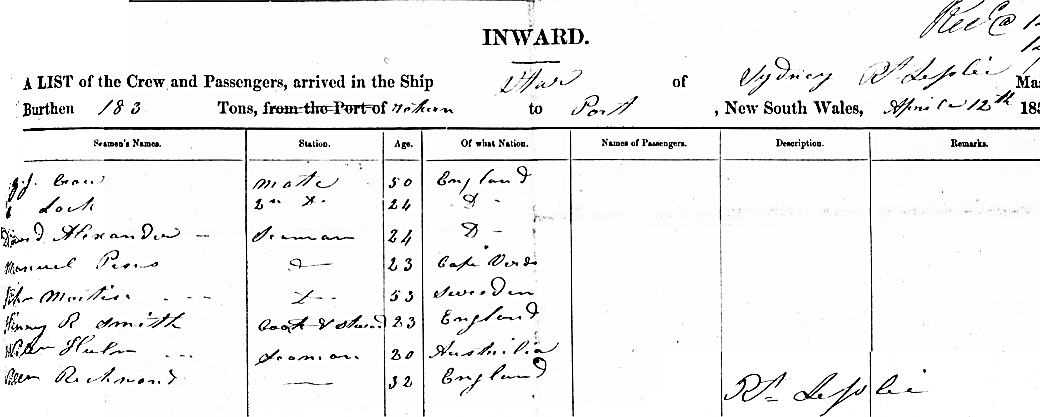 Rec @ 12
INWARD.
A LIST of the Crew and Passengers, arrived in the Ship Star of Sydney Rt Lesslie Mas
Burthen 183 Tons, from the Port of return to Port , New South Wales, April 12th 185
Seamen's Names. Station. Age. Of what Nation. Names of Passengers. Description. Remarks.
Mate 50 England
Lock 2n Do 24 Do -
David Alexander - Seaman 24 Do -
Manuel Do 23 Cape Verds
John Do 53 Sweeden
Henry R Smith Cook & Steward 23 England
Seaman 20 Australia
Richmond 32 England
Rt Lesslie